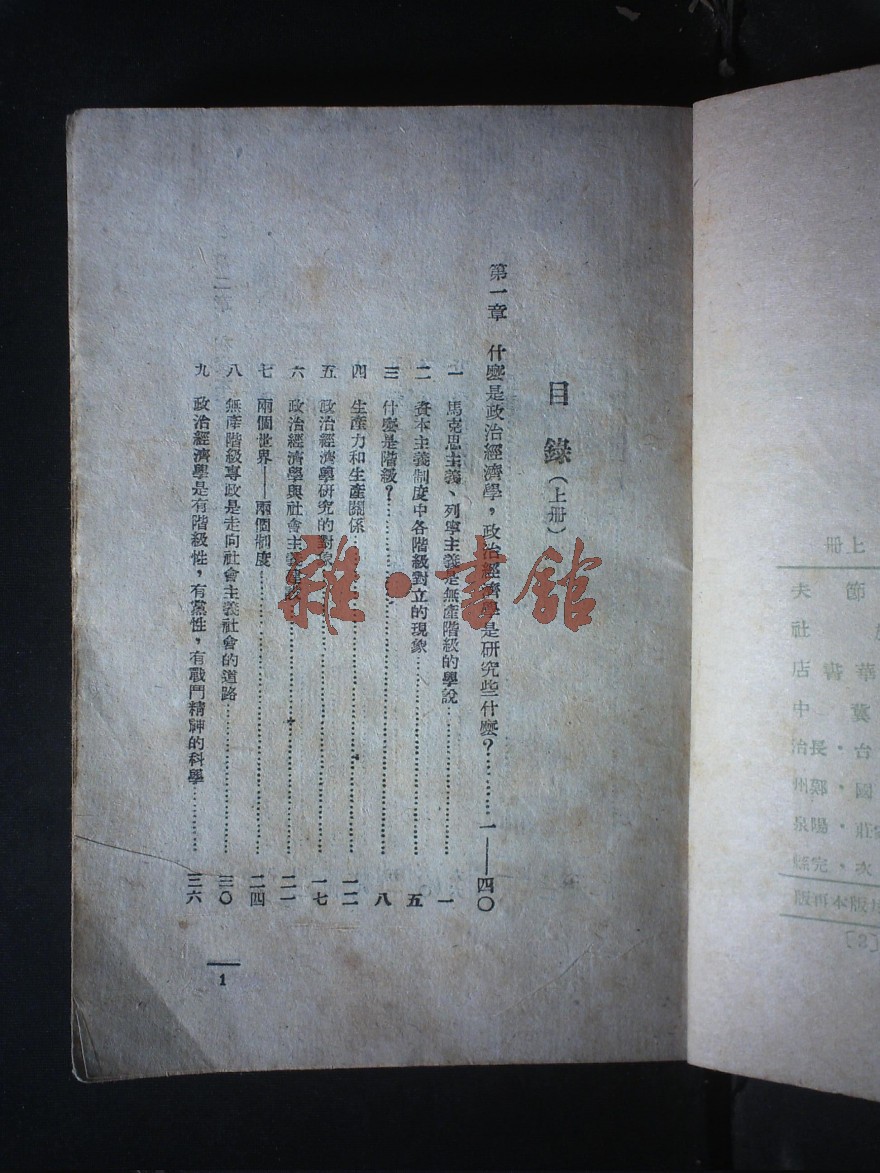 目錄（上册）
第一章　什麽是政治經濟學，政治經濟學是研究些什麽？…………一——四〇
一　馬克思主義、列寧主義是無產階級的學說…………一
二　資本主義制度中各階級對立的現象…………五
三　什麽是階級？…………八
四　生產力和生產關係…………一二
五　政治經濟學研究的對象…………一七
六　政治經濟學與社會主義建設…………二一
七　兩個世界——兩個制度…………二四
八　無產階級專政是走向社會主義社會的道路…………三〇
九　政治經濟學是有階級性，有黨性，有戰鬥精神的科學…………三六
1
雜·書館
上册
節夫
社
華書店
冀中
台·長治
國·鄭州
莊·陽泉
次·完縣
版本再版
[3]